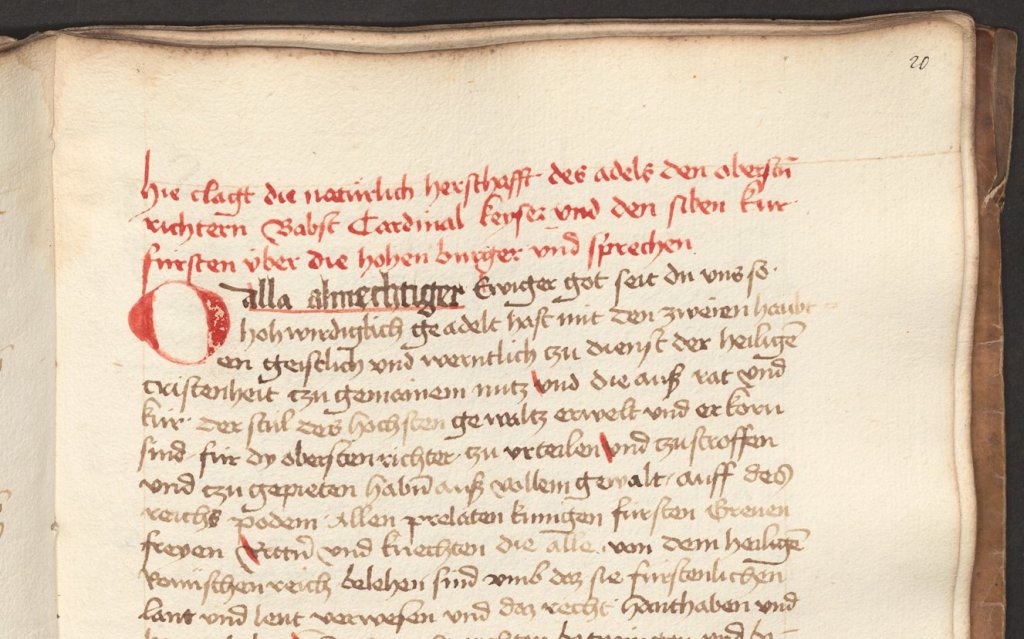 20
Hie clagt die natürlich herschafft des adels den oberstn̄
richtern Babst Cardinal keyser vnd den siben kur
fursten vber die hohen burger vnd sprechen
O alla almechtiger Ewiger got seit du vns so
hoh wirdiglich geadelt hast mit den zweien haubt
en geistlich vnd werntlich tzu dienst der heiligē
cristenheit tzu gemainem nutz vnd die auß rat vnd
kur der stul des hochsten gewaltz erwelt vnd erkorn
sind fur dy obersten richter zu vrteilen vnd tzu stroffen
vnd tzu gepieten habn̄ auß vollem gewalt auff des
reichs podem allen prelaten kunigen fursten Greuen
freyen Rittn̄ vnd knechten die alle von dem heiligē
Romischen reich belehen sind vmb daz sie furstenlichen
lant vnd leut verwesen vnd daz recht hanthaben vnd